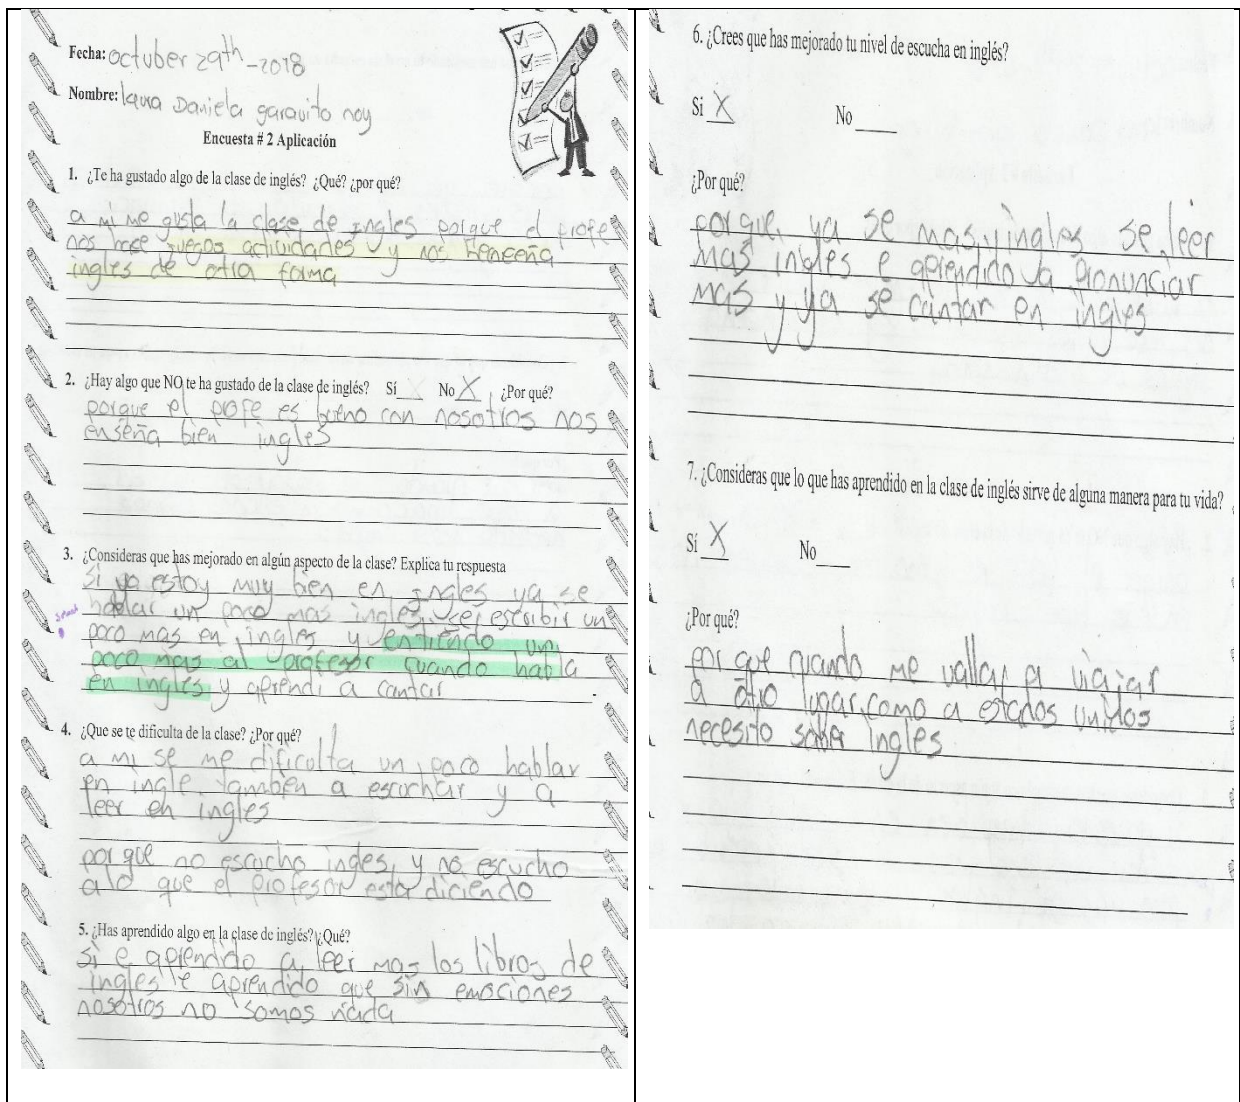 Fecha: october 29th -2018
Nombre: laura Daniela garavito noy
Encuesta # 2 Aplicación
1. ¿Te ha gustado algo de la clase de inglés? ¿Qué? ¿por qué?
a mi me gusta la clase de ingles porque el profe
nos hace juegos actividades y nos
ingles de otra forma
2. ¿Hay algo que NO te ha gustado de la clase de inglés? Sí___ No X ¿Por qué?
porque el profe es bueno con nosotros nos
enseña bien ingles
3. ¿Consideras que has mejorado en algún aspecto de la clase? Explica tu respuesta
Si ya estoy muy bien en ingles ya se
hablar un poco mas ingles, se escribir un
poco mas en ingles y entiendo un
poco mas al profesor cuando habla
en ingles y aprendi a cantar
4. ¿Que se te dificulta de la clase? ¿Por qué?
a mi se me dificulta un poco hablar
en ingle tambien a escuchar y a
leer en ingles
por que no escucho ingles y no escucho
a lo que el profesor esta diciendo
5. ¿Has aprendido algo en la clase de inglés? ¿Qué?
si e aprendido a leer mas los libros de
ingles e aprendido que sin emociones
nosotros no somos nada
6. ¿Crees que has mejorado tu nivel de escucha en inglés?
Si X No____
¿Por qué?
porque, ya se mas ingles se leer
mas ingles e aprendido a pronunciar
mas y ya se cantar en ingles
7. ¿Consideras que lo que has aprendido en la clase de inglés sirve de alguna manera para tu vida?
Sí X No____
¿Por qué?
por que cuando me valla a viajar
a otro lugar como a estados unidos
necesito saber ingles